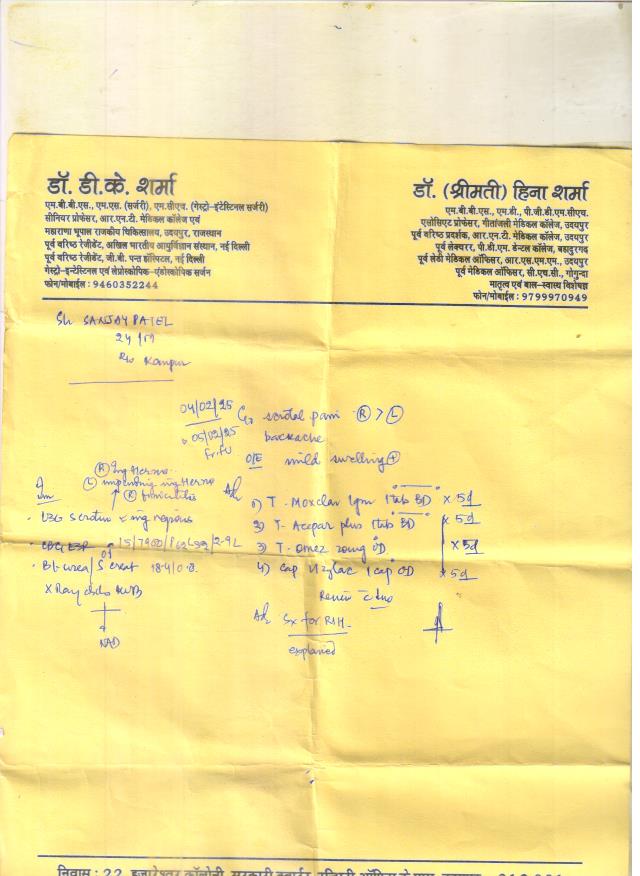 डॉ. डी.के. शर्मा
एम.बी.बी.एस., एम.एस. (सर्जरी), एम.सीएच. (गेस्ट्रो-इंटेस्टिनल सर्जरी)
सीनियर प्रोफेसर, आर.एन.टी. मेडिकल कॉलेज एवं
महाराणा भूपाल राजकीय चिकित्सालय, उदयपुर, राजस्थान
पूर्व वरिष्ठ रेजीडेंट, अखिल भारतीय आयुर्विज्ञान संस्थान, नई दिल्ली
पूर्व वरिष्ठ रेजीडेंट, जी.बी. पन्त हॉस्पिटल, नई दिल्ली
गेस्ट्रो-इन्टेस्टिनल एवं लेप्रोस्कोपिक-एंडोस्कोपिक सर्जन
फोन/मोबाईल : 9460352244
डॉ. (श्रीमती) हिना शर्मा
एम.बी.बी.एस., एम.डी., पी.जी.डी.एम.सीएच.
एसोसिएट प्रोफेसर, गीतांजली मेडिकल कॉलेज, उदयपुर
पूर्व वरिष्ठ प्रदर्शक, आर.एन.टी. मेडिकल कॉलेज, उदयपुर
पूर्व लेक्चरर, पी.डी.एम. डेन्टल कॉलेज, बहादुरगढ़
पूर्व लेडी मेडिकल ऑफिसर, आर.एस.एम.एम., उदयपुर
पूर्व मेडिकल ऑफिसर, सी.एच.सी., गोगुन्दा
मातृत्व एवं बाल-स्वास्थ्य विशेषज्ञ
फोन/मोबाईल : 9799970949
Sh SANJAY PATEL
24/M
R/o Kanpur
04/02/25 C/o scrotal pain (R) > (L)
05/02/25 backache
Fr. FU
O/E mild swelling (+)
(R) Ing Hernia
(L) impending ing Hernia
(R) funiculitis
Adv
1) T - Moxclav 1gm 1tab BD x 5d
USG Scrotum & ing regions
2) T - Acepar plus 1tab BD x 5d
CBC, ESR 15/7900/P62L32/2.9L
3) T - Omez 20mg OD x 5d
Bl. urea/S creat 18.4/0.8
4) Cap Vizylac 1cap OD x 5d
X Ray KUB
Review
NAD
Adv Sx for RIH
explained
निवास : 22,